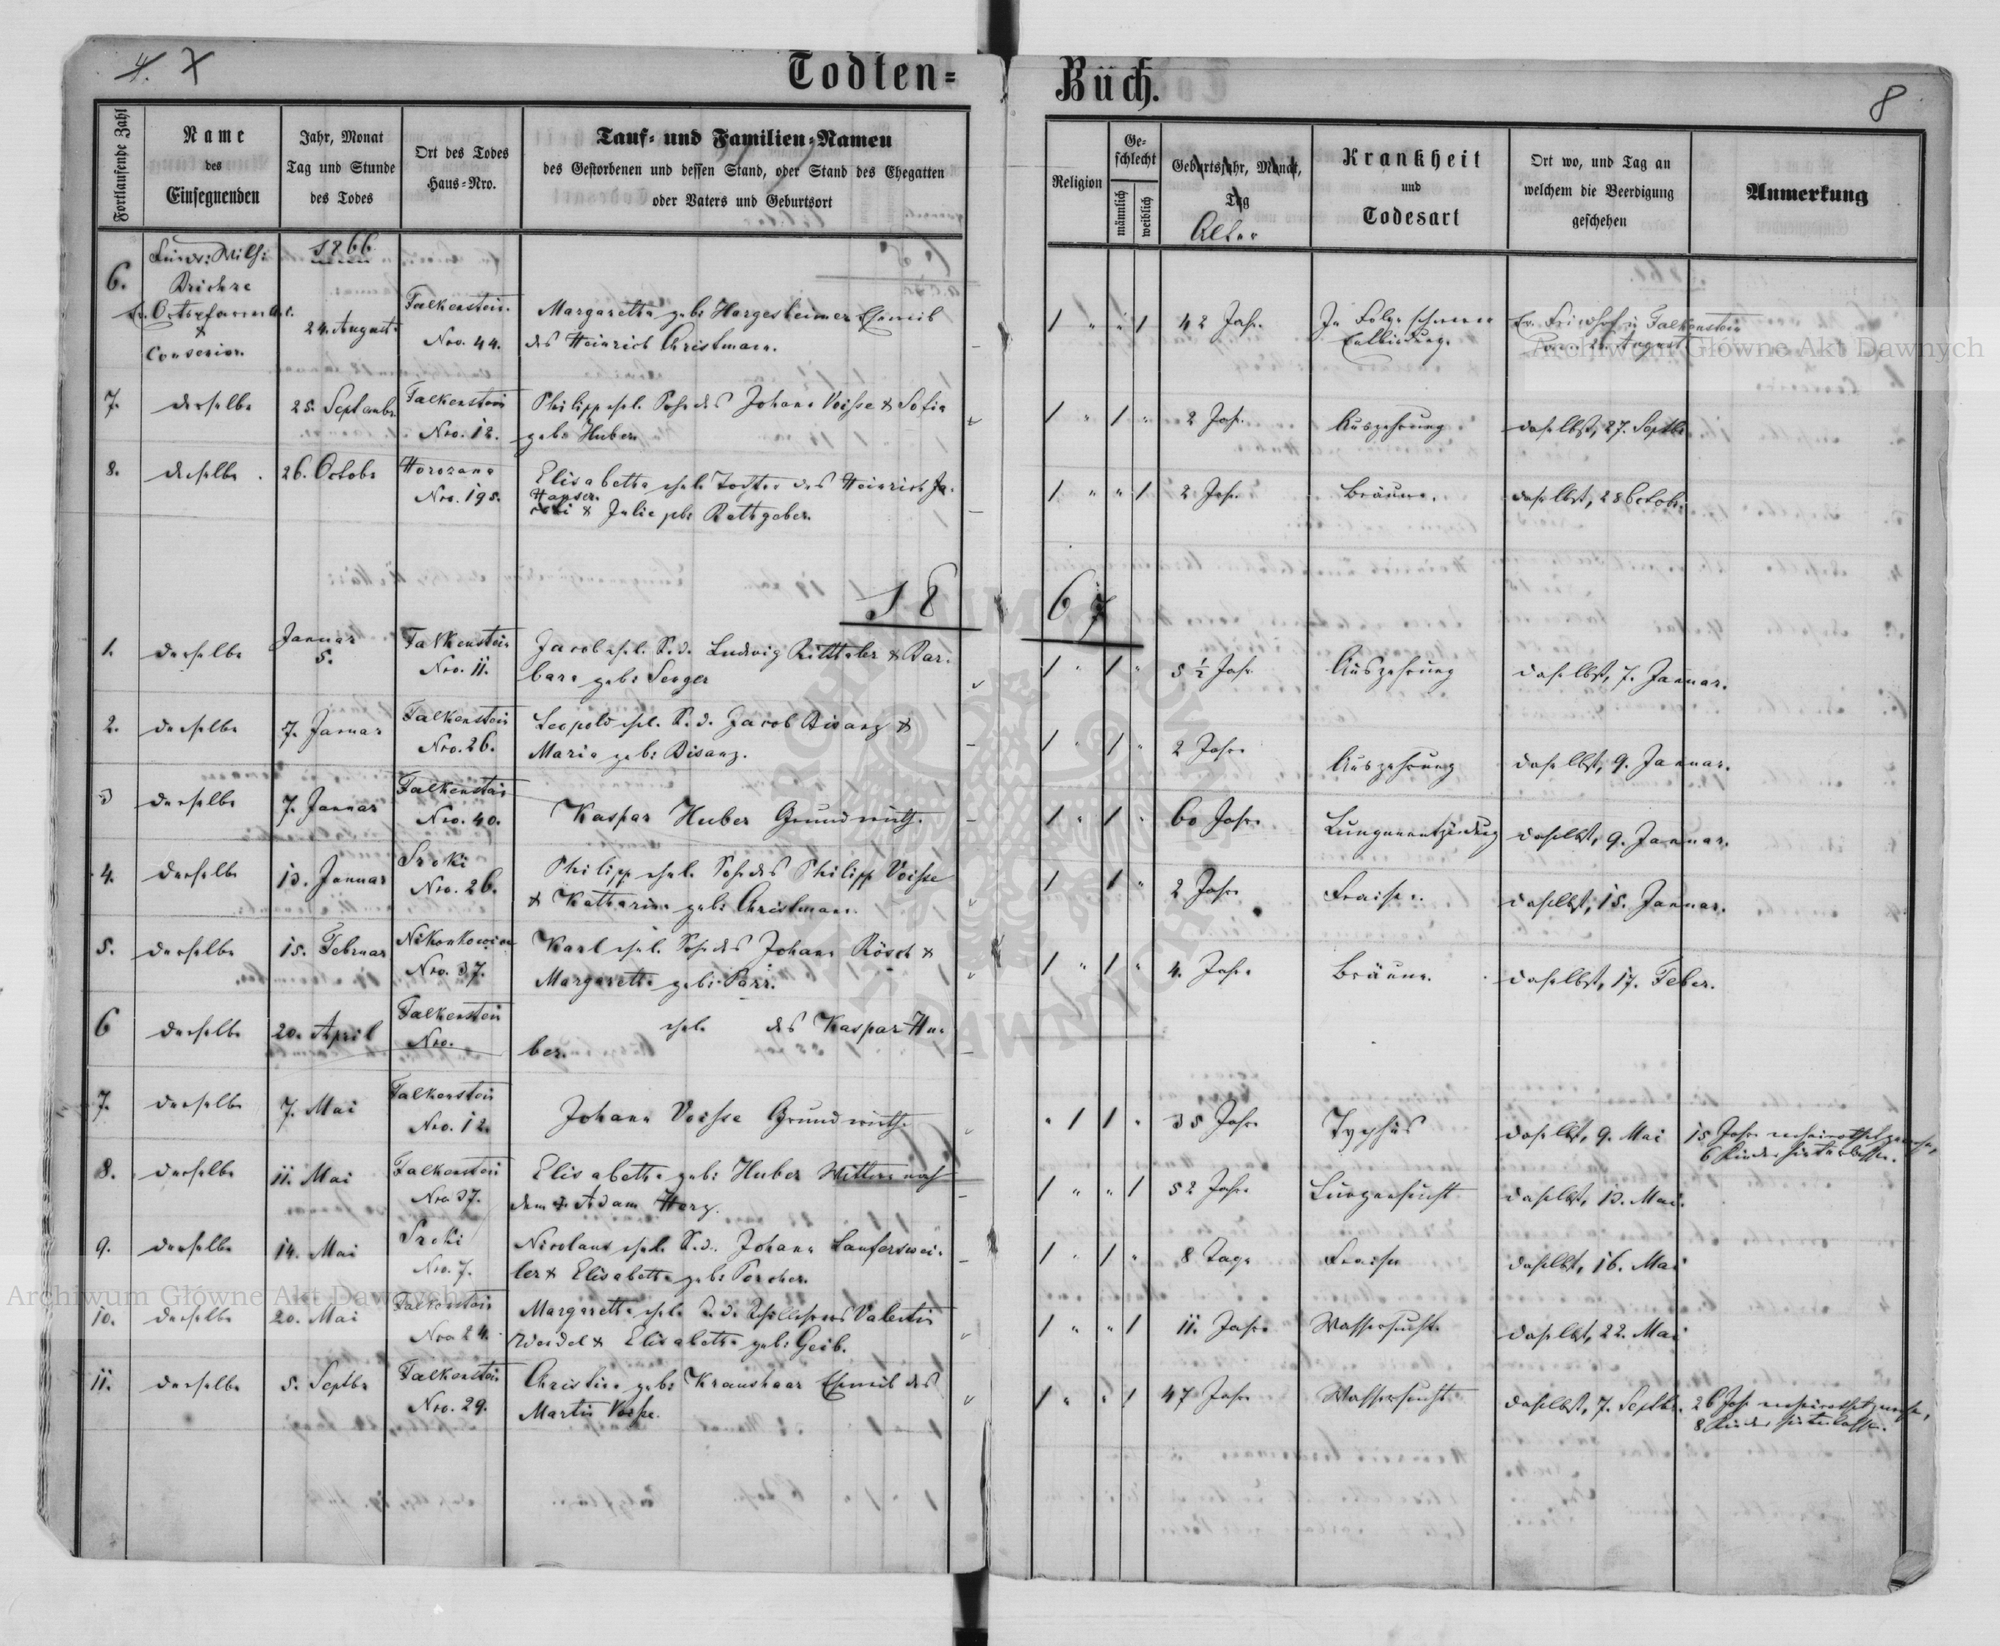 4. 7
Todten-Buch.
8
Fortlaufende Zahl
Name
des
Einsegnenden
Jahr, Monat
Tag und Stunde
des Todes
Ort des Todes
Haus-Nro.
Tauf- und Familien-Namen
des Gestorbenen und dessen Stand, oder Stand des Ehegatten
oder Vaters und Geburtsort
Religion
Ge-
schlecht
männlich
weiblich
Geburtsjahr, Monat,
Tag
Alter
Krankheit
und
Todesart
Ort wo, und Tag an
welchem die Beerdigung
geschehen
Anmerkung
1866
6.
Ortspfarrer
&
Consenior.
24. August
Falkenstein.
Nro. 44.
Margaretha geb: Hargesheimer Eheweib
des Heinrich Christmann.
1 " " 1
42 Jahr.
In Folge schwerer
Entbindung.
Ev. Friedhof in Falkenstein
August
7.
derselbe
25. September
Falkenstein
Nro. 12.
Philipp ehel. Sohn des Johann Voisse & Sofia
geb: Huber.
1 " 1 "
2 Jahr.
Auszehrung
daselbst, 27. Septbr
8.
derselbe.
26. Octobr
Horozana
Nro. 195.
Elisabetha ehel. Tochter des Heinrich
Hauser
& Julie geb: Rathgeber.
1 " " 1
2 Jahr.
Bräune.
daselbst, 28 Octobr.
1867
1.
derselbe
Januar
5.
Falkenstein
Nro. 11.
Jacob ehel. S. d. Ludwig Rittthaler & Bar-
bara geb: Senger
1 " 1 "
5 1/2 Jahr
Auszehrung
daselbst, 7. Januar.
2.
derselbe
7. Januar
Falkenstein
Nro. 26.
Leopold ehel. S. d. Jacob Bisanz &
Maria geb: Bisanz.
1 " 1 "
2 Jahre
Auszehrung
daselbst, 9. Januar.
3
derselbe
7. Januar
Falkenstein
Nro. 40.
Kaspar Huber Grundwirth.
1 " 1 "
60 Jahre
Lungenentzündung
daselbst, 9. Januar.
4.
derselbe
13. Januar
Sroki
Nro. 26.
Philipp ehel. Sohn des Philipp Voisse
& Katharina geb: Christmann.
1 1 "
2 Jahre
Fraisen.
daselbst, 15. Januar.
5.
derselbe
15. Februar
Nikonkowice
Nro. 37.
Karl ehel. Sohn des Johann Rösch &
Margaretha geb: Parr.
1 " 1 "
4. Jahre
Bräune.
daselbst, 17. Feber.
6
derselbe
20. April
Falkenstein
Nro.
ehel. des Kaspar Hu-
ber.
7.
derselbe
7. Mai
Falkenstein
Nro. 12.
Johann Voisse Grundwirth
" 1 1 "
35 Jahre
Typhus
daselbst, 9. Mai
15 Jahre verheirathet gewesen,
6 Kinder hinterlassen.
8.
derselbe
11. Mai
Falkenstein
Nro 37.
Elisabetha geb: Huber Wittwe nach
dem † Adam Harg.
1 " " 1
52 Jahre
Lungensucht
daselbst, 13. Mai.
9.
derselbe
14. Mai
Sroki
Nro. 7.
Nicolaus ehel. S. d. Johann Lauferswei-
ler & Elisabetha geb: Porcher.
1 " 1 "
8 Tage
Fraisen
daselbst, 16. Mai
10.
derselbe
20. Mai
Falkenstein
Nro 24.
Margaretha ehel. T. d. Schullehrers Valentin
Weidel & Elisabetha geb: Geib.
1 " " 1
11. Jahre
Wassersucht.
daselbst, 22. Mai
11.
derselbe
5. Septbr
Falkenstein
Nro. 29.
Christina geb: Kraushaar Eheweib des
Martin Voisse.
1 " " 1
47 Jahre
Wassersucht
daselbst, 7. Septbr.
26 Jahr verheirathet gewesen,
8 Kinder hinterlassen.
Archiwum Główne Akt Dawnych
Archiwum Główne Akt Dawnych